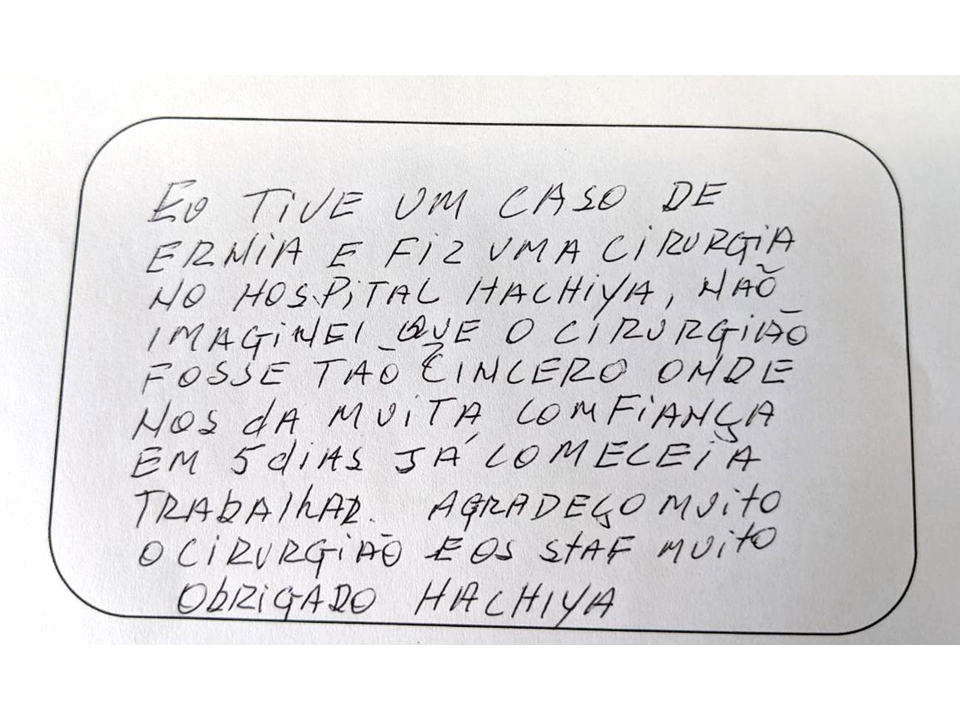 EU TIVE UM CASO DE
ERNIA E FIZ UMA CIRURGIA
NO HOSPITAL HACHIYA, NÃO
IMAGINEI QUE O CIRURGIÃO
FOSSE TÃO CINCERO ONDE
NOS dA MUITA COMFIANÇA
EM 5 diAS JÁ COMECEI A
TRABAlhAR. AGRADEÇO MUito
O CIRURGIÃO E OS StAF MUito
ObRIGADO HACHIYA